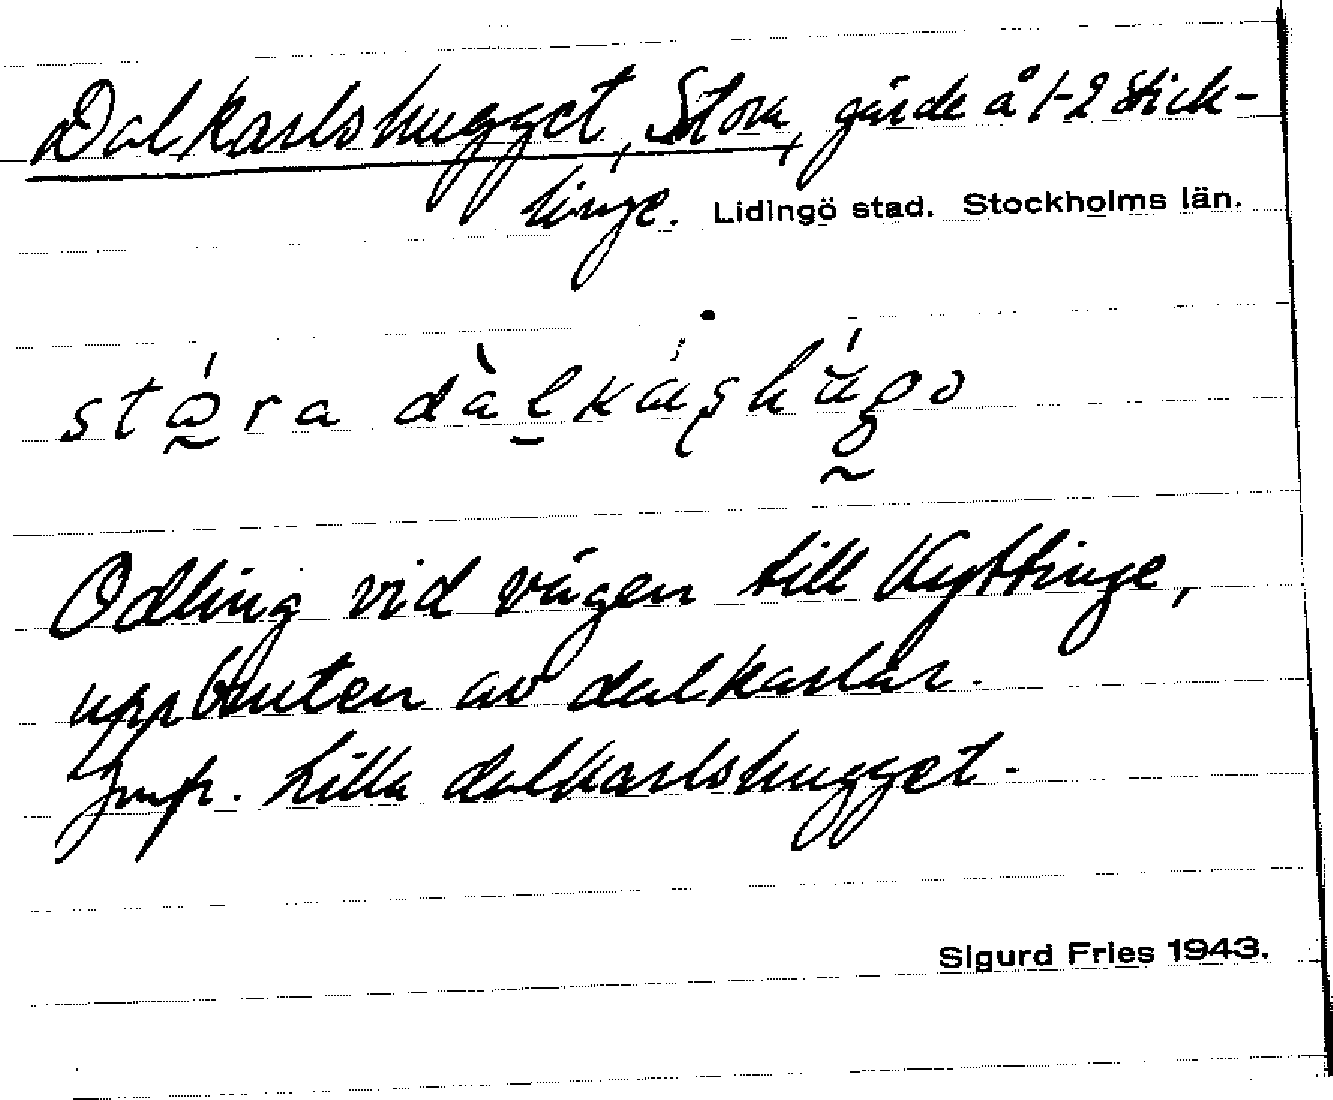 Dalkarlshugget, Stora, gärde å 1-2 Stick-
linge. Lidingö stad. Stockholms län.
stò̰ra dàl̠káʂhǘgo
Odling vid vägen till Kyttinge,
uppbruten av dalkarlar.
Jmfr. Lilla dalkarlshugget.
Sigurd Fries 1943.